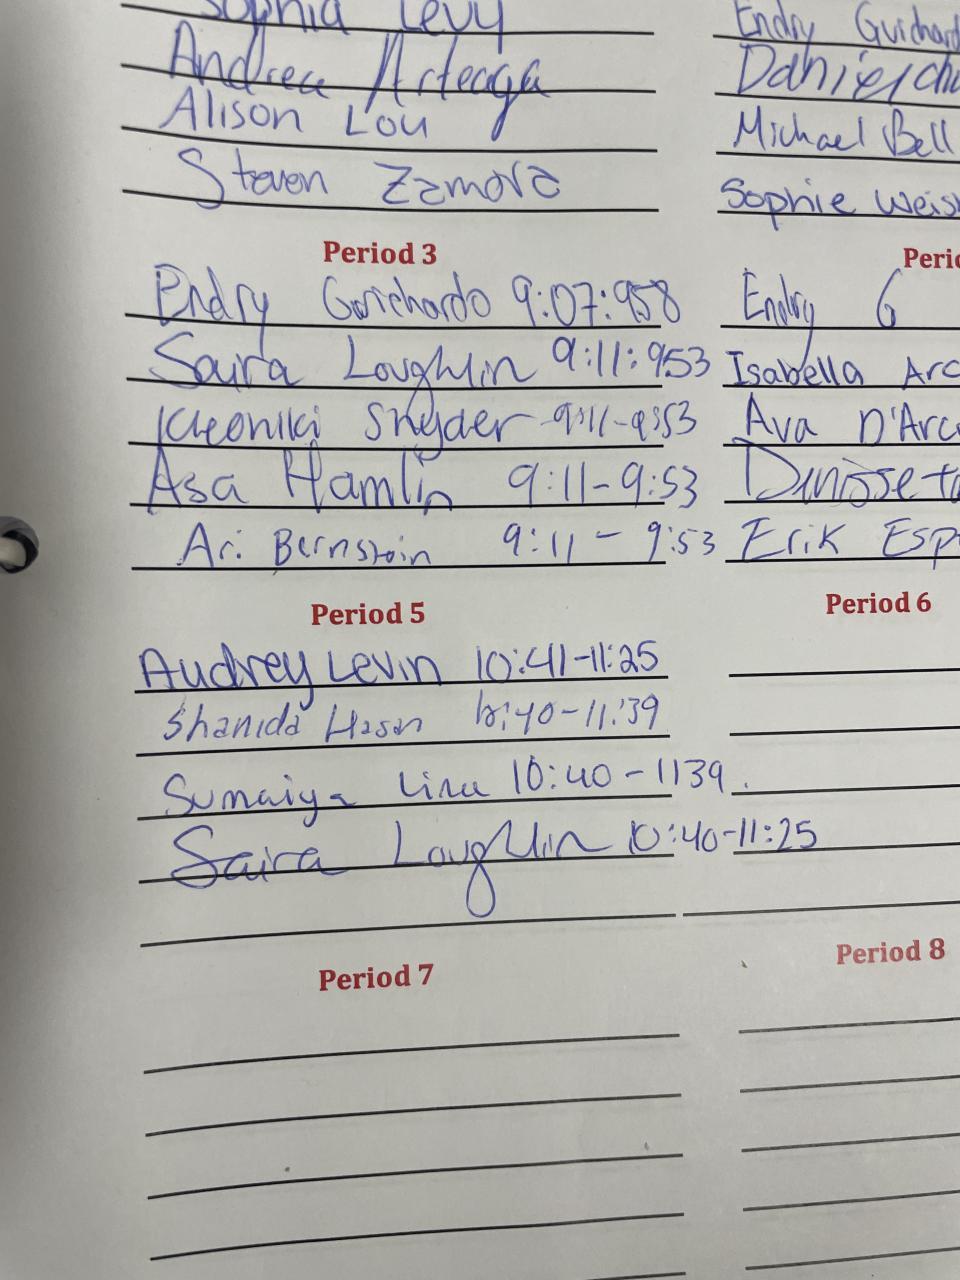 Sophia Levy
Andrea Arteaga
Alison Lou
Steven Zamora
Endry Guichard
Daniel
Michael Bell
Sophie Weis
Period 3
Endry Guichardo 9:07:958
Saira Loughlin 9:11:953
Kleoniki Snyder 9:11-9:53
Asa Hamlin 9:11-9:53
Ari Bernstein 9:11-9:53
Perio
Endry G
Isabella Arc
Ava D'Arc
Erik Esp
Period 5
Audrey Levin 10:41-11:25
Shanida Hasan 10:40-11:39
Sumaiya 10:40-1139.
Saira Loughlin 10:40-11:25
Period 6
Period 7
Period 8